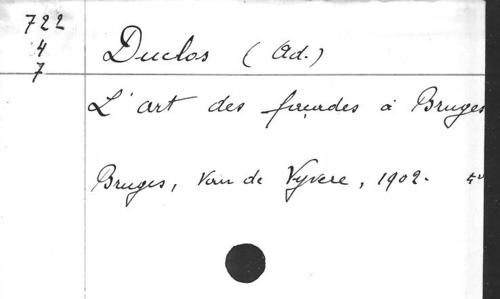 722
4
7
Duclos (Ad.)
L'art des façades à Bruges
Bruges, Van de Vyvere, 1902. 4°